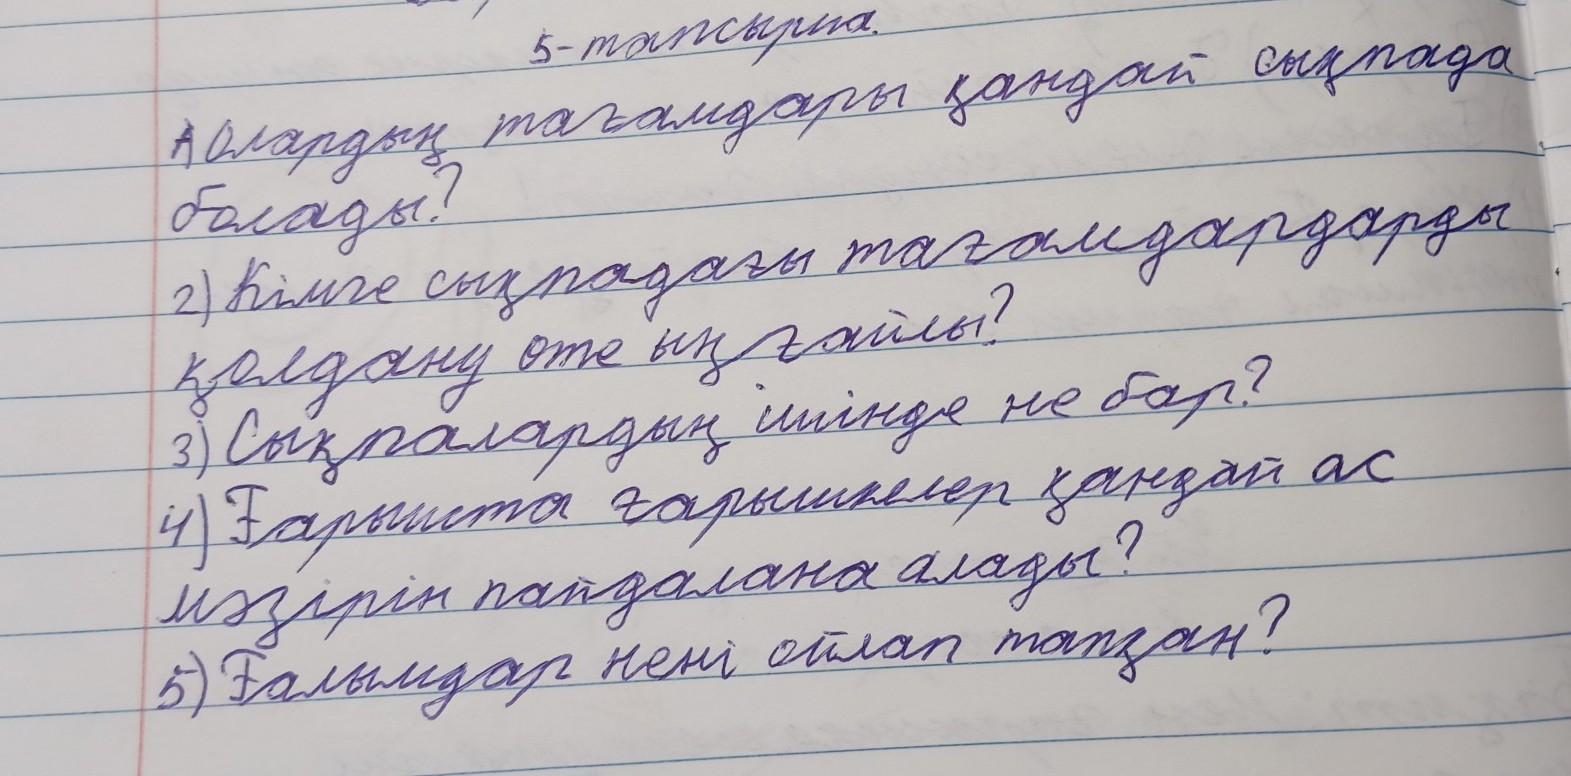 5-тапсырма.
1) Олардың тағамдары қандай сықпада
болады?
2) Кімге сықпадағы тағамдардарды
қолдану өте ыңғайлы?
3) Сықпалардың ішінде не бар?
4) Ғарышта ғарышкелер қандай ас
мәзірін пайдалана алады?
5) Ғалымдар нені ойлап тапқан?